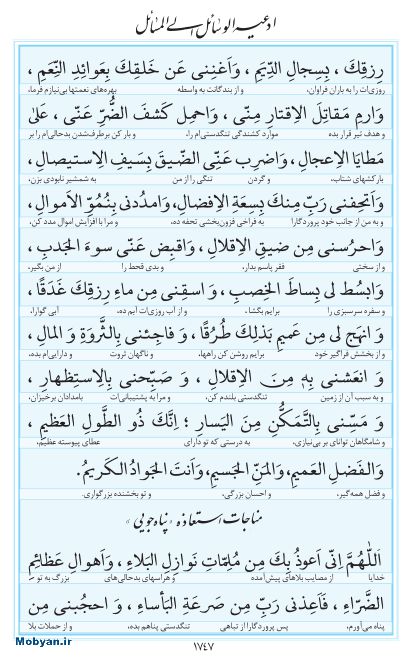 ادعیه الوسائل الی المسائل
رِزقِکَ ، بِسِجالِ الدِّیَمِ ، وَ اَغنِنی عَن خَلقِکَ بِعَوائِدِ النِّعَمِ ،
روزی‌ات را به باران فراوان، و از بندگانت به واسطه بهره‌های نعمتها بی‌نیازم فرما،
وَ ارمِ مَقاتِلَ الاِقتارِ مِنّی ، وَ احمِل کَشفَ الضُّرِّ عَنّی ، عَلیٰ
و هدف تیر قرار بده موارد کشندگی تنگدستی‌ام را، و بار کن برطرف‌شدن بدحالی‌ام را بر
مَطایَا الاِعجالِ ، وَ اضرِب عَنِّی الضّیقَ بِسَیفِ الاِستیصالِ ،
بارکشهای شتاب، و گردن تنگی را از من به شمشیر نابودی بزن،
وَ اَتحِفنی رَبِّ مِنکَ بِسِعَةِ الاِفضالِ، وَ امدُدنی بِنُمُوِّ الاَموالِ ،
و به من از جانب خود پروردگارا به فراخی فزون‌بخشی تحفه ده، و مرا با افزایش اموال مدد کن،
وَ احرُسنی مِن ضیقِ الاِقلالِ ، وَ اقبِض عَنّی سوءَ الجَدبِ ،
و از سختی فقر پاسم بدار، و بدی قحط را از من بگیر،
وَ ابسُط لی بِساطَ الخِصبِ ، وَ اسقِنی مِن ماءِ رِزقِکَ غَدَقًا ،
و سفره سرسبزی را برایم بگشا، و از آب روزی‌ات آبم ده، آبی گوارا،
وَ انهَج لی مِن عَمیمِ بَذلِکَ طُرُقًا ، وَ فاجِئنی بِالثَّروَةِ وَ المالِ ،
و از بخشش فراگیر خود برایم روشن کن راهها، و ناگهان ثروت و دارایی‌ام بده،
وَ انعَشنی بِهٖ مِنَ الاِقلالِ ، وَ صَبِّحنی بِالاِستِظهارِ ،
و به سبب آن از زمین تنگدستی بلندم کن، و مرا به پشتیبانی‌ات بامدادان برخیزان،
وَ مَسِّنی بِالتَّمَکُّنِ مِنَ الیَسارِ ؛ اِنَّکَ ذُو الطَّولِ العَظیمِ ،
و شامگاهان توانای بر بی‌نیازی، به درستی که تو دارای عطای پیوسته عظیم،
وَ الفَضلِ العَمیمِ، وَ المَنِّ الجَسیمِ، وَ اَنتَ الجَوادُ الکَریمُ.
و فضل همه‌گیر، و احسان بزرگی، و تو بخشنده بزرگواری.
مناجات استعاذه «پناه‌جویی»
اَللّٰهُمَّ اِنّی اَعوذُ بِکَ مِن مُلِمّاتِ نَوازِلِ البَلاءِ ، وَ اَهوالِ عَظائِمِ
خدایا از مصایب بلاهای پیش‌آمده و هراسهای بدحالی‌های بزرگ به تو
الضَّرّاءِ ، فَاَعِذنی رَبِّ مِن صَرعَةِ البَأساءِ ، وَ احجُبنی مِن
پناه می‌آورم، پس پروردگارا از تباهی تنگدستی پناهم بده، و از حملات بلا
۱۷۴۷
Mobyan.ir